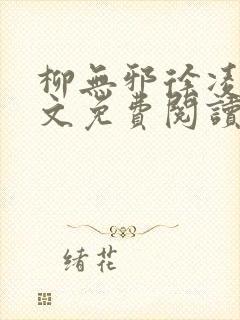 柳無邪徐凌
文免費閱讀
緒花